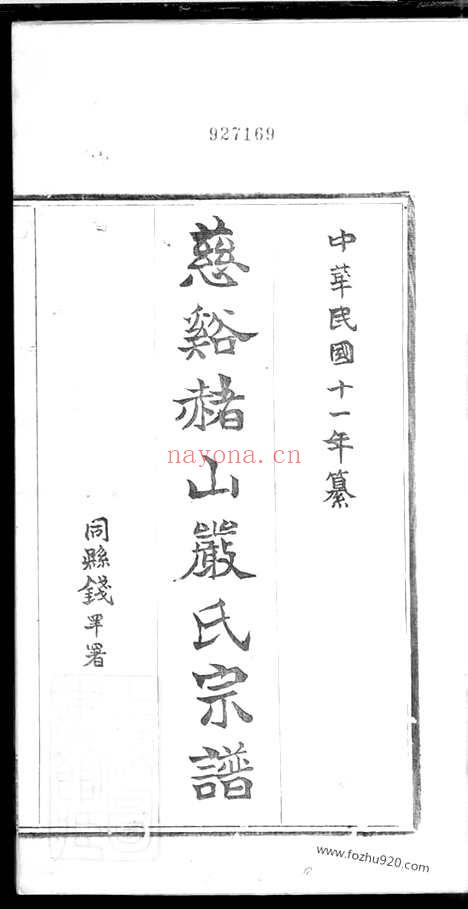 927169
中華民國十一年纂
慈谿赭山嚴氏宗譜
同縣錢罕署
nayona.cn
www.fozhu920.com